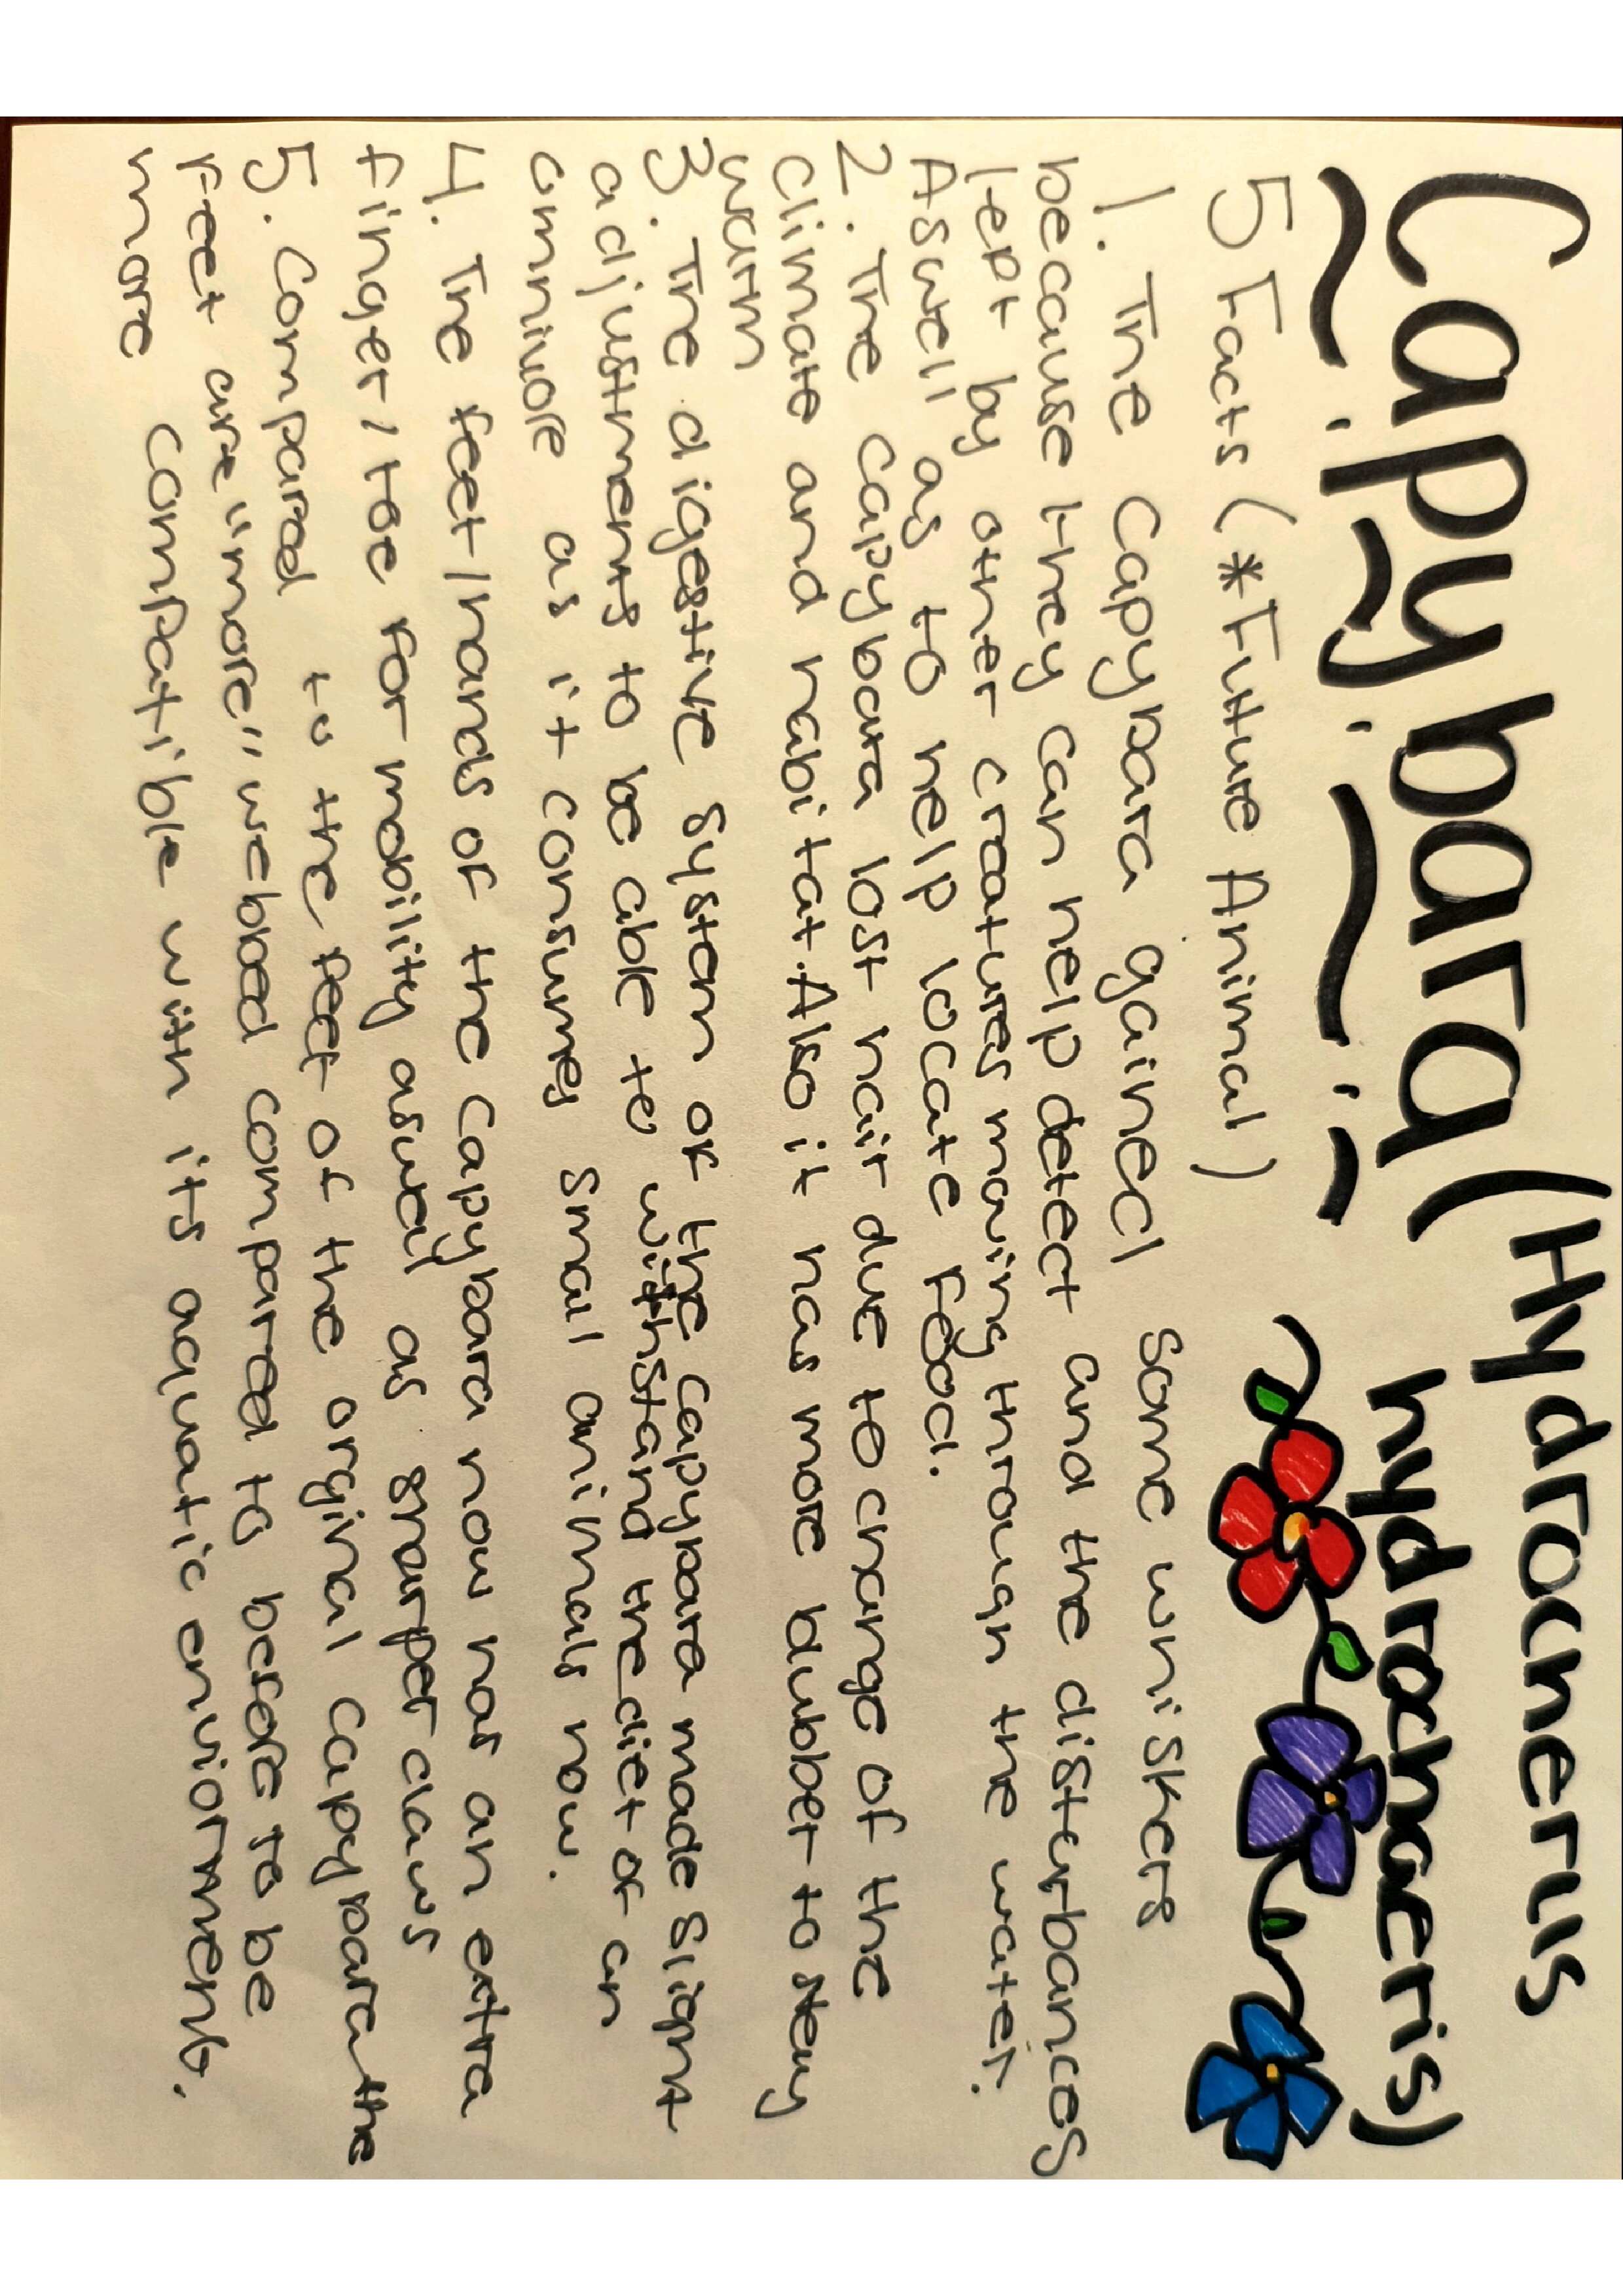 Capybara (Hydrocnerus
hydrochaeris)
5 Facts (*Future Animal)
1. The Capybara gained some whiskers
because they can help detect and the disterbances
lept by other creatures moving through the water.
Aswell as to help locate food.
2. The capybara lost hair due to change of the
climate and habitat. Also it has more blubber to stay
warm
3. The digestive system of the capybara made slight
adjustments to be able to withstand the diet of an
omnivore as it consumes small animals now.
4. The feet/hands of the capybara now has an extra
finger/toe for mobility aswell as sharper claws
5. Compared to the feet of the orginal capybara the
feet are "more" webbed compared to before to be
more compatible with its aquatic enviornment.